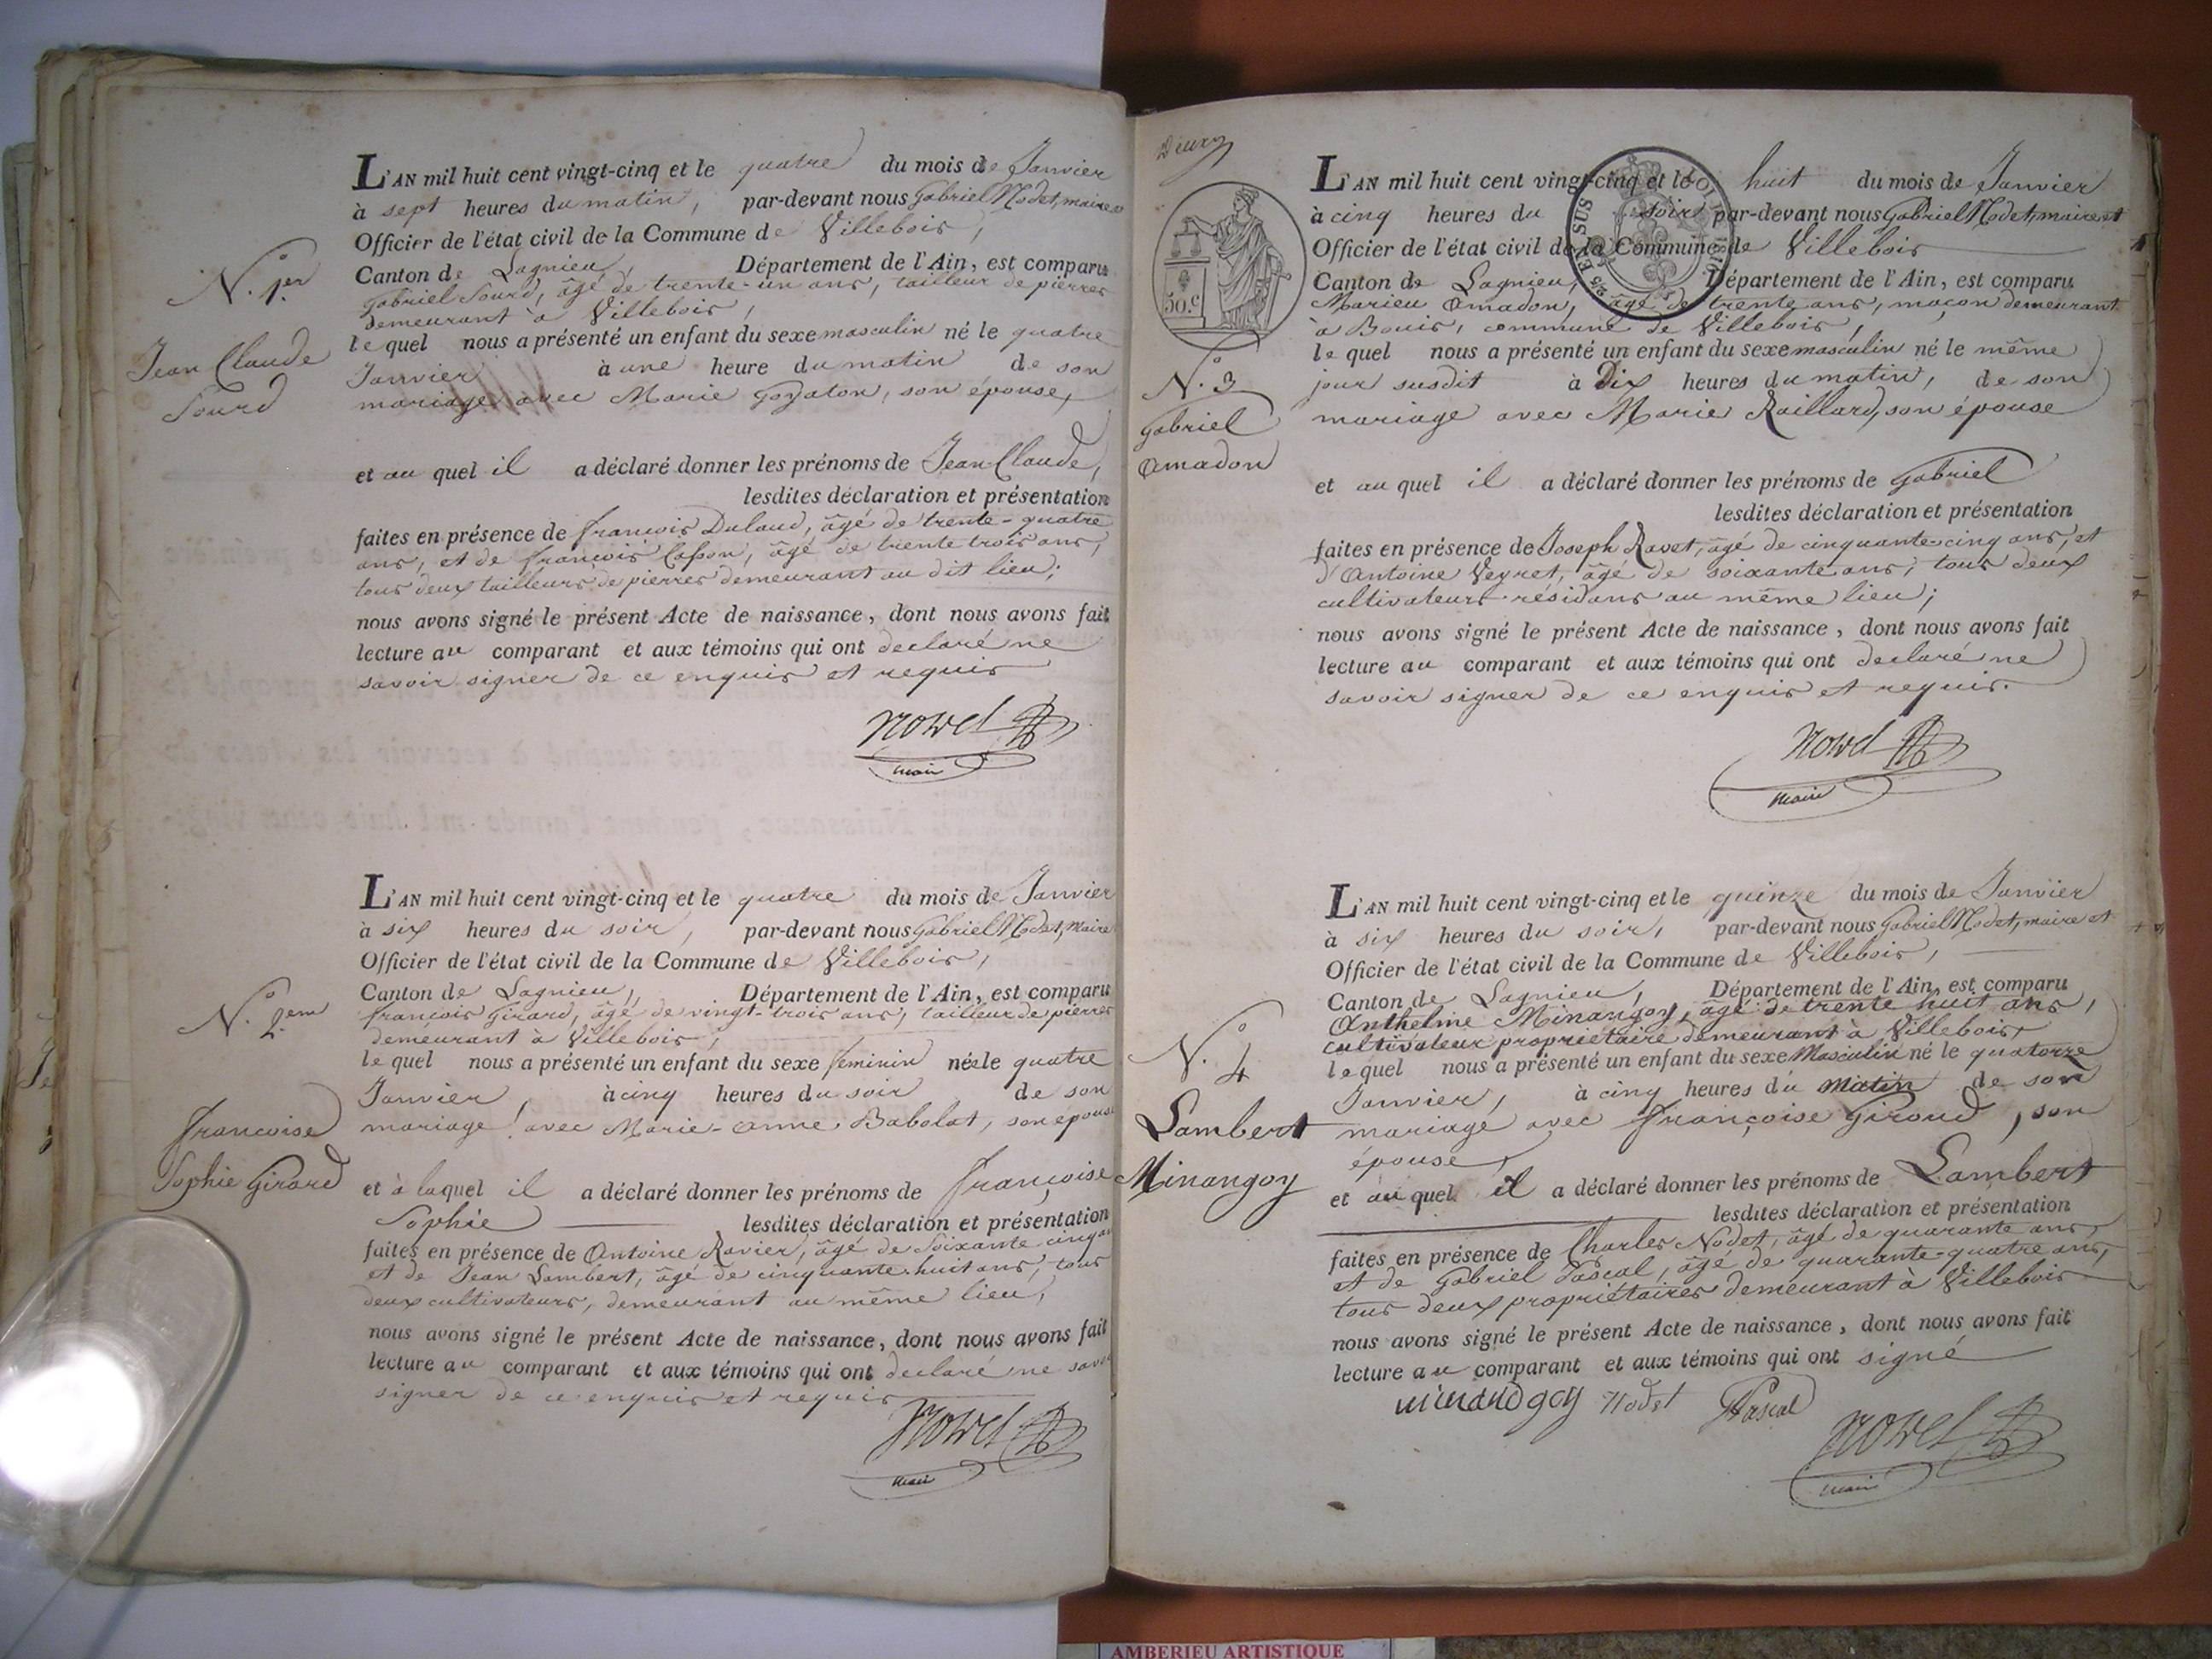 N.º 1.er
Jean Claude
Sourd
L'AN mil huit cent vingt-cinq et le quatre du mois de Janvier
à sept heures du matin, par-devant nous Gabriel Nodet, maire
Officier de l'état civil de la Commune de Villebois,
Canton de Lagnieu, Département de l'Ain, est comparu
Gabriel Sourd, âgé de trente-un ans, tailleur de pierres
demeurant à Villebois,
le quel nous a présenté un enfant du sexe masculin né le quatre
Janvier à une heure du matin de son
mariage avec Marie Goyaton, son épouse,
et au quel il a déclaré donner les prénoms de Jean Claude,
lesdites déclaration et présentation
faites en présence de francois Dulaud, âgé de trente-quatre
ans, et de francois, âgé de trente trois ans,
tous deux tailleurs de pierres demeurant au dit lieu;
nous avons signé le présent Acte de naissance, dont nous avons fait
lecture au comparant et aux témoins qui ont declaré ne
savoir signer de ce enquis et requis
Nodet
maire
N.º 2.em
francoise
Sophie Girard
L'AN mil huit cent vingt-cinq et le quatre du mois de Janvier
à six heures du soir, par-devant nous Gabriel Nodet, maire
Officier de l'état civil de la Commune de Villebois,
Canton de Lagnieu, Département de l'Ain, est comparu
francois Girard, âgé de vingt-trois ans, tailleur de pierres
demeurant à Villebois,
le quel nous a présenté un enfant du sexe feminin née le quatre
Janvier, à cinq heures du soir de son
mariage avec Marie-anne Babolat, son épouse
et à laquel il a déclaré donner les prénoms de françoise
Sophie lesdites déclaration et présentation
faites en présence de Antoine Ravier, âgé de soixante cinq ans
et de Jean Lambert, âgé de cinquante-huit ans, tous
deux cultivateurs, demeurant au même lieu,
nous avons signé le présent Acte de naissance, dont nous avons fait
lecture au comparant et aux témoins qui ont declaré ne savoir
signer de ce enquis et requis
Nodet
maire
Deux
50.c
N.º 3
Gabriel
Amadon
L'AN mil huit cent vingt-cinq et le huit du mois de Janvier
à cinq heures du soir par-devant nous Gabriel Nodet, maire et
Officier de l'état civil de la Commune de Villebois
Canton de Lagnieu, Département de l'Ain, est comparu
Marieu Amadon, âgé de trente ans, maçon demeurant
à Bouis, commune de Villebois,
le quel nous a présenté un enfant du sexe masculin né le même
jour susdit à Dix heures du matin, de son
mariage avec Marie Raillard, son épouse
et au quel il a déclaré donner les prénoms de Gabriel
lesdites déclaration et présentation
faites en présence de Joseph Ravet, âgé de cinquante cinq ans, et
d'Antoine Veyret, âgé de soixante ans, tous deux
cultivateurs résidans au même lieu;
nous avons signé le présent Acte de naissance, dont nous avons fait
lecture au comparant et aux témoins qui ont declaré ne
savoir signer de ce enquis et requis.
Nodet
maire
N.º 4
Lambert
Minangoy
L'AN mil huit cent vingt-cinq et le quinze du mois de Janvier
à six heures du soir, par-devant nous Gabriel Nodet, maire et
Officier de l'état civil de la Commune de Villebois,
Canton de Lagnieu, Département de l'Ain, est comparu
Anthelme Minangoy, âgé de trente huit ans,
cultivateur propriétaire demeurant à Villebois,
le quel nous a présenté un enfant du sexe Masculin né le quatorze
Janvier, à cinq heures du matin de son
mariage avec françoise Giroud, son
épouse,
et au quel il a déclaré donner les prénoms de Lambert
lesdites déclaration et présentation
faites en présence de Charles Nodet, âgé de quarante ans,
et de Gabriel Pascal, âgé de quarante-quatre ans,
tous deux propriétaires demeurant à Villebois
nous avons signé le présent Acte de naissance, dont nous avons fait
lecture au comparant et aux témoins qui ont signé
minandgoy Nodet Pascal
Nodet
maire
AMBERIEU ARTISTIQUE